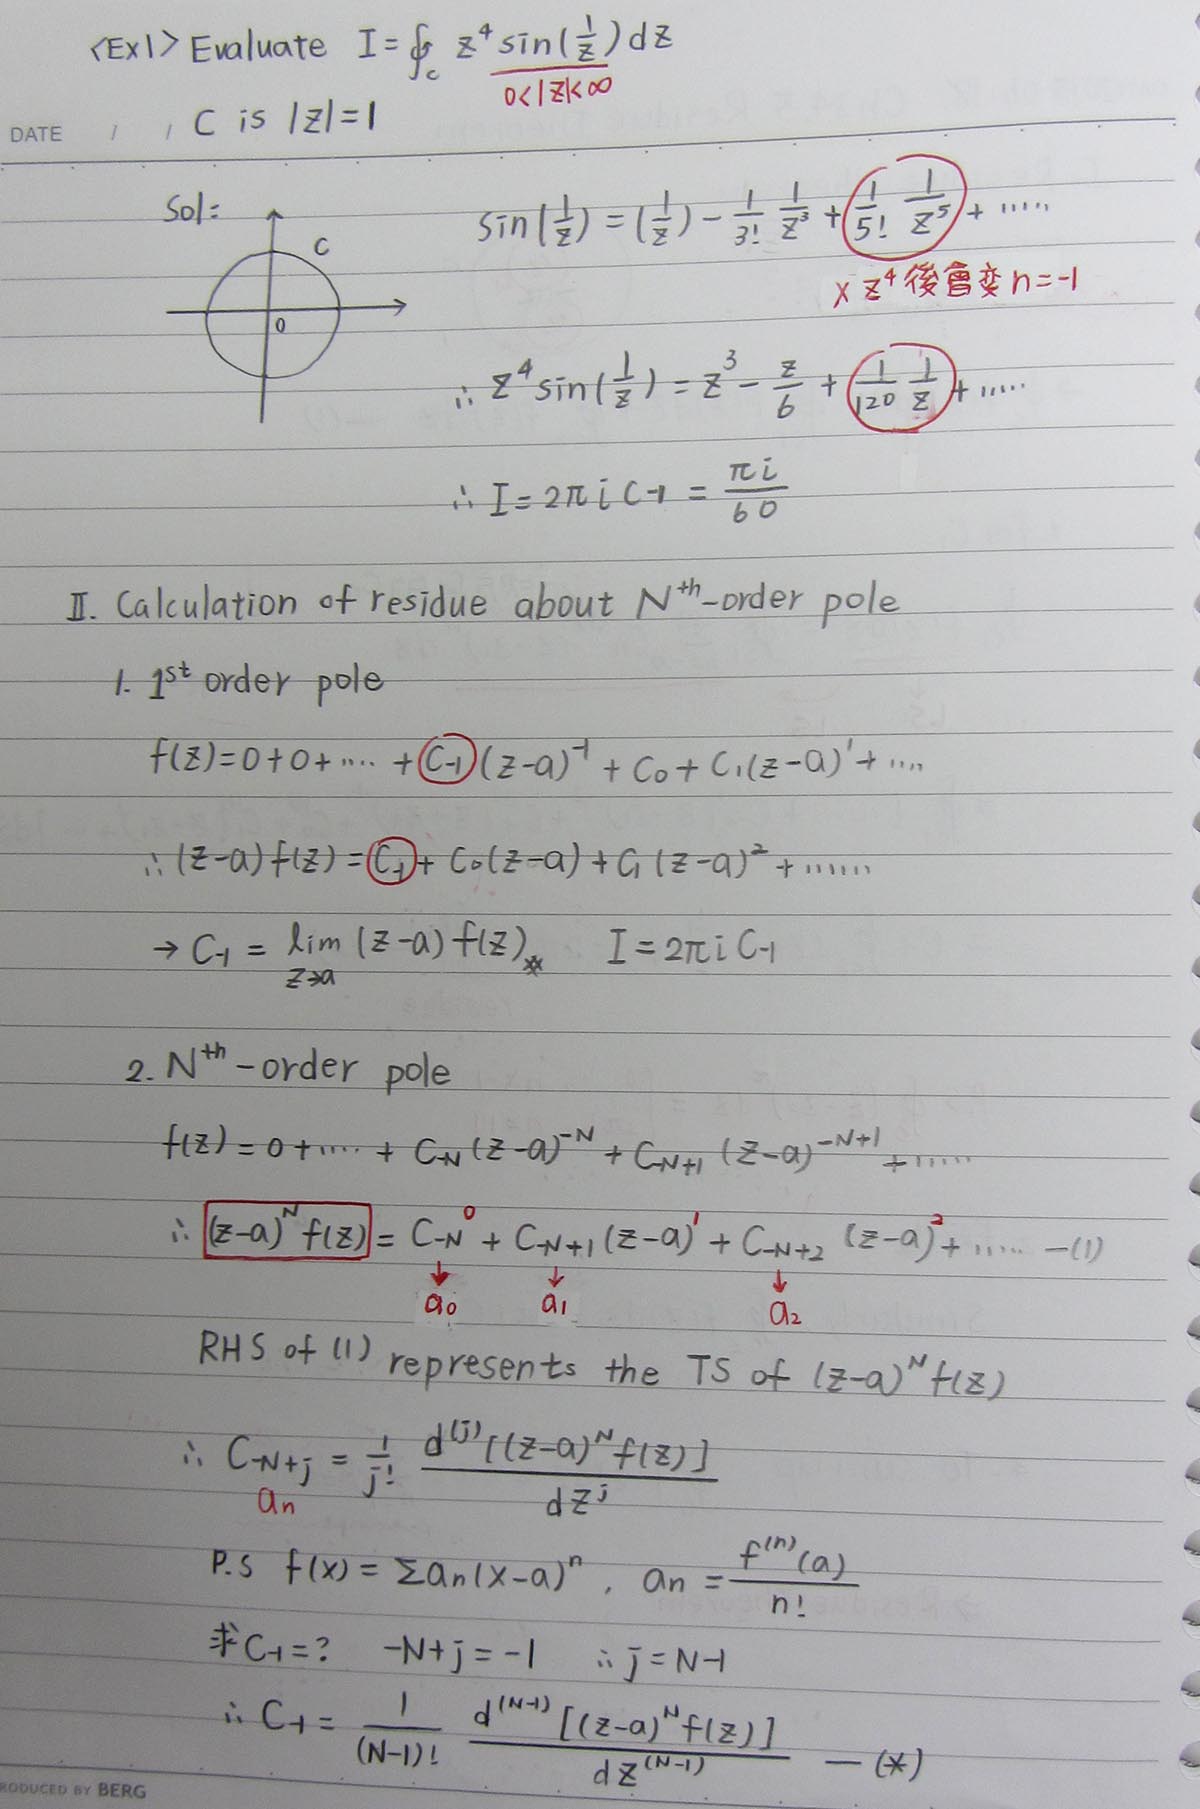 <Ex1> Evaluate I = ∮_C z⁴ sin(1/z) dz
0<|z|<∞
DATE / / C is |z|=1
Sol:
C
0
sin(1/z) = (1/z) - 1/3! 1/z³ + 1/5! 1/z⁵ + .....
× z⁴ 後會变 n=-1
∴ z⁴ sin(1/z) = z³ - z/6 + 1/120 1/z + .....
∴ I = 2πi C₋₁ = πi/60
II. Calculation of residue about Nᵗʰ-order pole
1. 1ˢᵗ order pole
f(z) = 0+0+ .... + C₋₁ (z-a)⁻¹ + C₀ + C₁(z-a)¹ + ....
∴ (z-a) f(z) = C₋₁ + C₀(z-a) + C₁ (z-a)² + ......
→ C₋₁ = lim_{z→a} (z-a) f(z) ※ I = 2πi C₋₁
2. Nᵗʰ-order pole
f(z) = 0 + .... + C_{-N} (z-a)^{-N} + C_{-N+1} (z-a)^{-N+1} + ......
∴ (z-a)^N f(z) = C_{-N}⁰ + C_{-N+1} (z-a)¹ + C_{-N+2} (z-a)² + ..... —(1)
↓ ↓ ↓
a₀ a₁ a₂
RHS of (1) represents the TS of (z-a)^N f(z)
∴ C_{-N+j} = 1/j! d^{(j)} [(z-a)^N f(z)] / dz^j
aₙ
P.S f(x) = Σaₙ(x-a)ⁿ , aₙ = f⁽ⁿ⁾(a)/n!
求C₋₁=? -N+j = -1 ∴ j = N-1
∴ C₋₁ = 1/(N-1)! d^{(N-1)} [(z-a)^N f(z)] / dz^{(N-1)} —(*)
RODUCED BY BERG